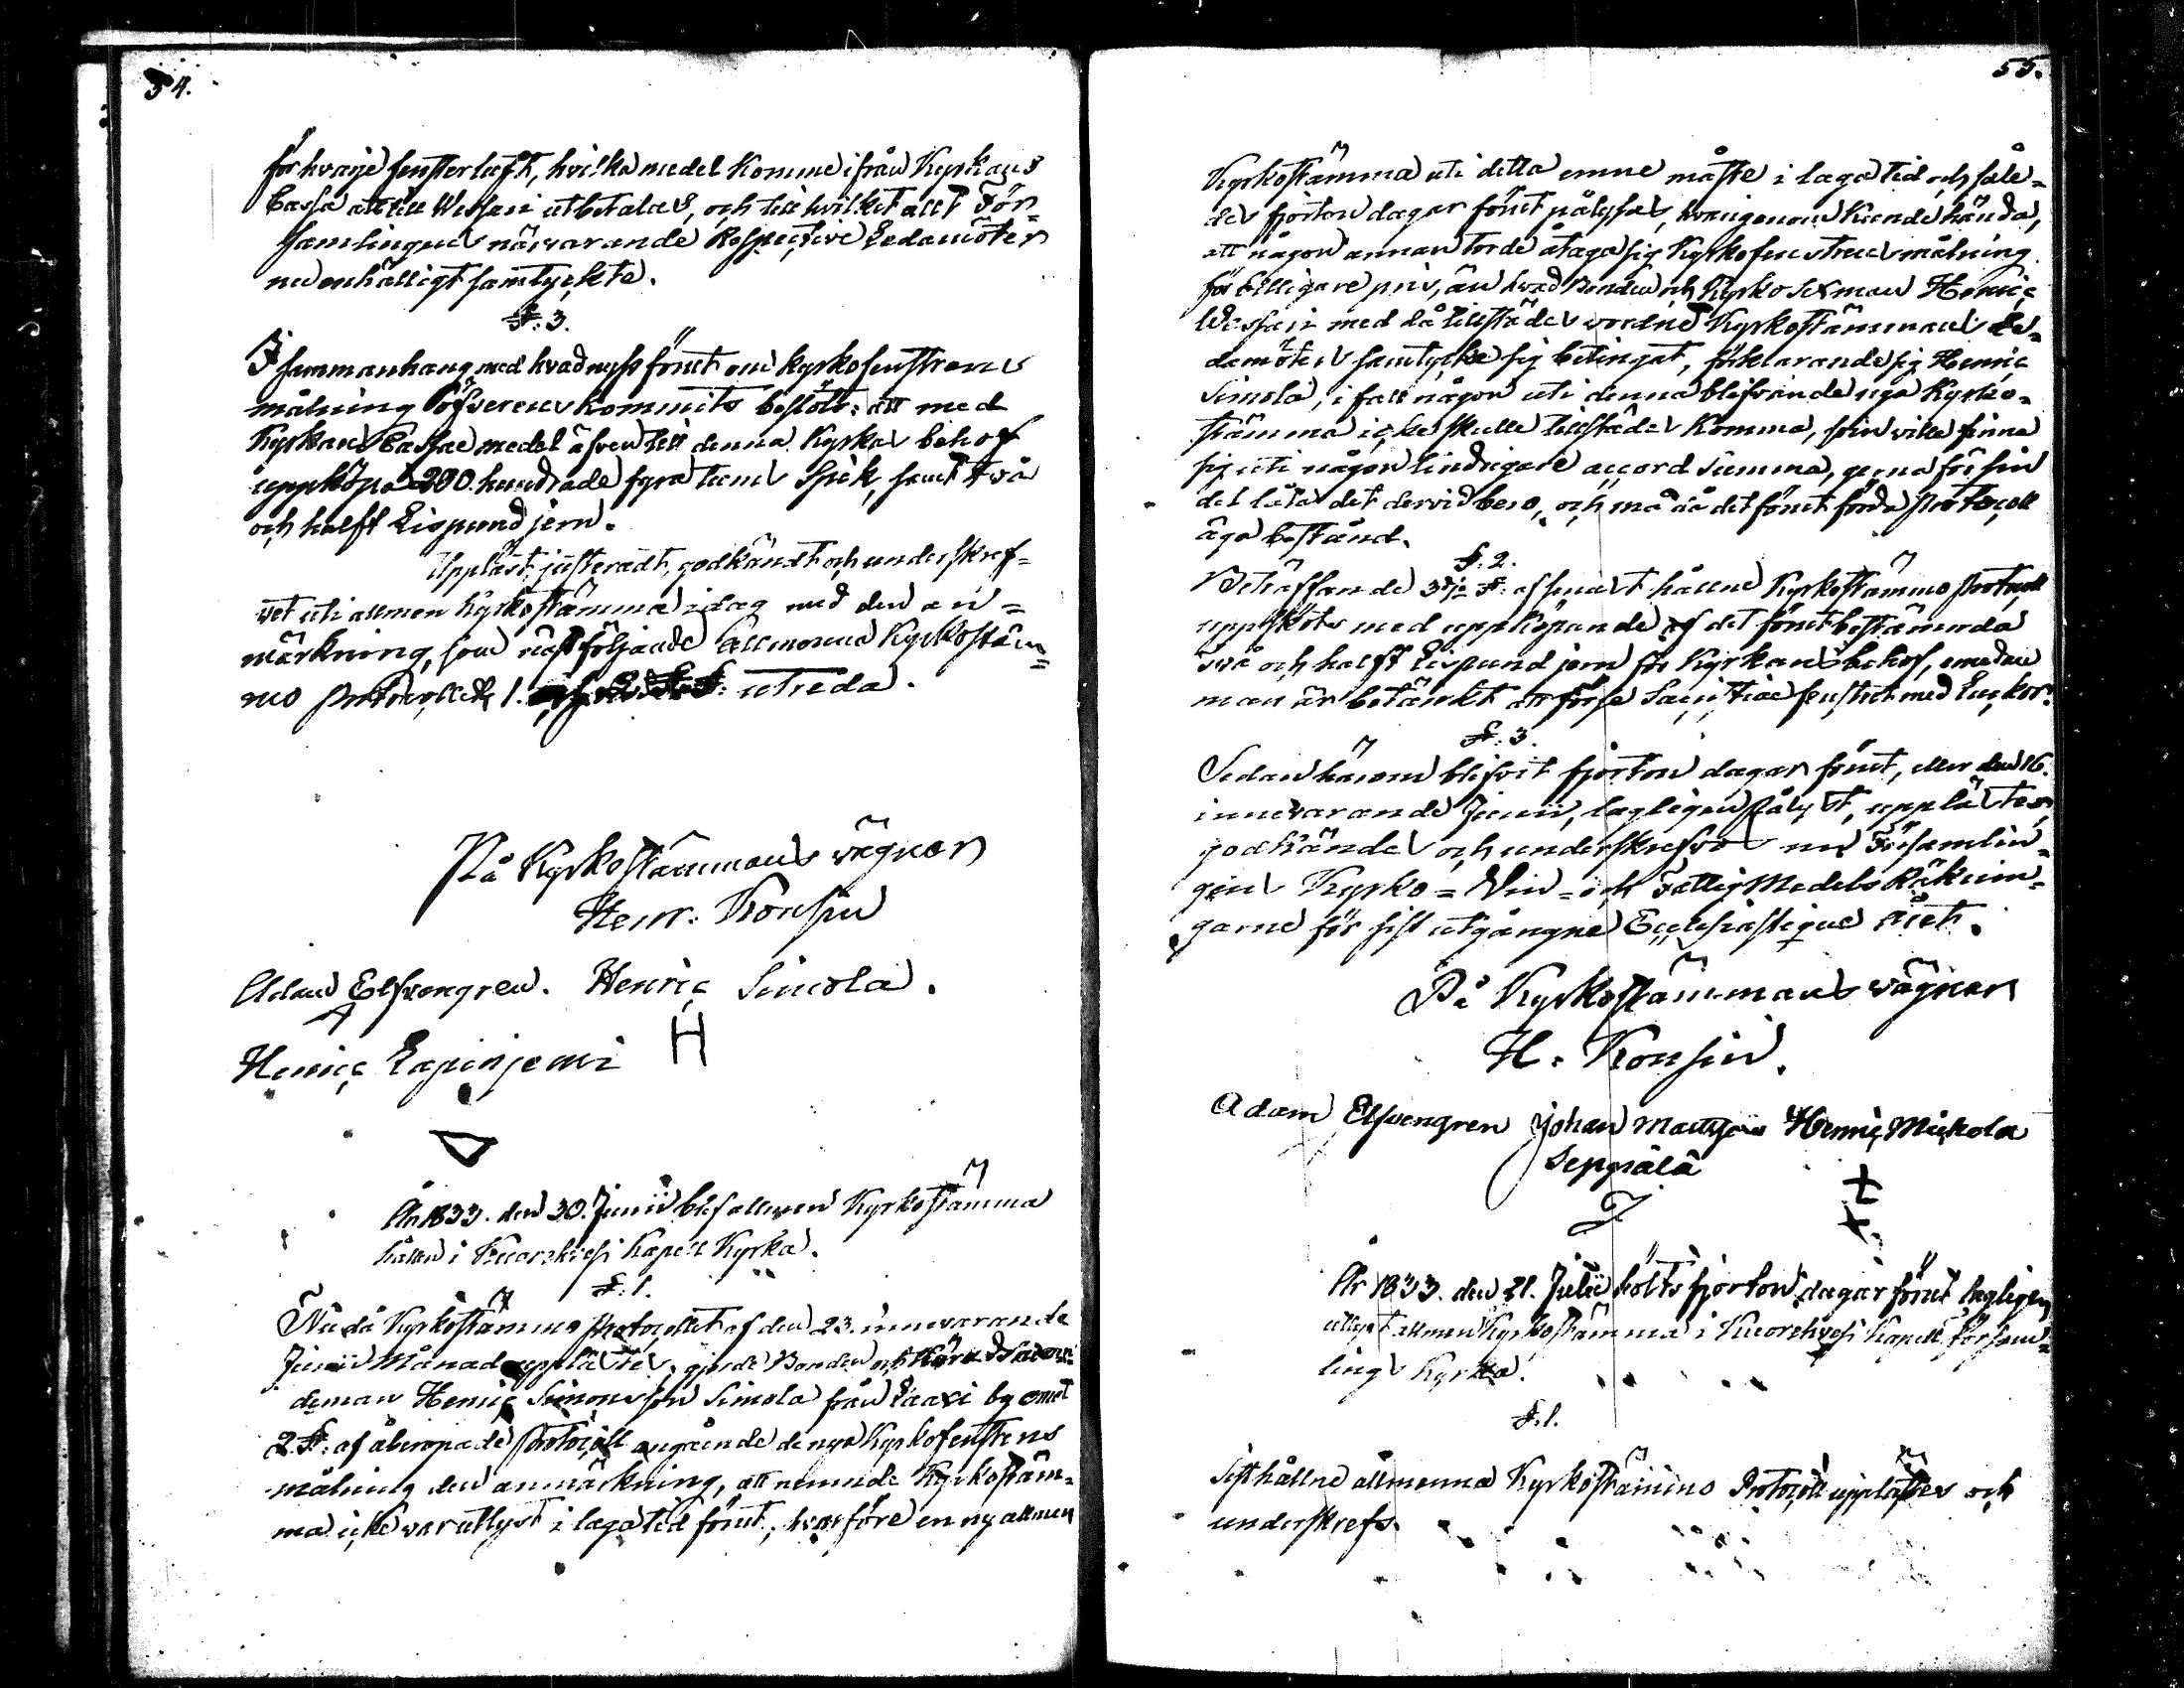 54.
för hvarje fenster luft, hvilka medel komme ifrån Kyrkans
Cassa att till Wessari utbetalas, och till hvilket allt För-
samlingens närvarande Respective Ledamöter
med enhälligt samtyckte.
§. 3.
I sammanhang med hvad nyss förut om kyrkofenstrens
målning öfverenskommits beslöts: att med
Kyrkans Cassae medel äfven till denna Kyrkas behof
uppköpa 200. hundrade fyra tums Spik, samt två
och halft Lispund jern.
Uppläst, justeradt, godkändt och underskref-
vet uti allmän Kyrkostämma idag med den an-
märkning, som nästföljande Allmänna Kyrkostäm-
mo Protocollets 1. utreda.
På Kyrkostämmans vägnar
Henr: Konsin
Adam Elfvengren. Henric Simola.
H
Henric Lapinjemi
År 1833. den 30. Junii blef allmän Kyrkostämma
hållen i Kuorehvesi Kapell Kyrka.
§. 1.
Nu då Kyrkostämmo Protocollet af den 23. innevarande
Junii Månad upplästes, gjorde Bonden och
deman Henric Simonsson Simola från Laaxi by emot
2. §: af åberopade Protocoll angående de nya Kyrkofenstrens
målning den anmärkning, att nemnde Kyrkostäm-
ma icke var utlyst i laga tid förut, hvarföre en ny allmän
55.
Kyrkostämma uti detta emne måste i laga tid och såle-
des fjorton dagar förut pålysas, hvarigenom kunde hända,
att någon annan torde åtaga sig Kyrkofenstrens målning
för billigare pris, än hvad Bonden och Kyrko Sexman Henric
Wessari med då tillstädes vordne Kyrkostämmans Le-
damöters samtycke sig betingat, förklarande sig Henric
Simola, i fall någon uti denna blifvande nya Kyrko-
stämma icke skulle tillstädes komma, som ville finna
sig uti någon lindrigare accord Summa, gerna för sin
del låta det dervid bero, och må då det förut förda Protocoll
äga bestånd.
§. 2.
Beträffande 3dje §: af senast hållne Kyrkostämmo Protocoll
uppskötes med uppköpande af det förut bestämmda
två och halft Lispund jern för Kyrkans behof, emedan
man är betänkt att förse Sacristiae fenstret med Luckor.
§. 3.
Sedan härom blifvit fjorton dagar förut, eller den 16.
innevarande Junii, lagligen pålyst, upplästes,
godkändes och underskrefvos nu Församlin-
gens Kyrko= Vin= och Fattig Medels Räknin-
garne för sist utgångne Ecclesiastique året.
På Kyrkostämmans vägnar
H. Konsin.
Adam Elfvengren Johan Mattsson Henric Mickola
Seppälä
År 1833. den 21. Julii hölts fjorton dagar förut lagligen
utlyst allmän Kyrkostämma i Kuorehvesi Kapell försam-
lings Kyrka.
§. 1.
Sist hållne allmenna Kyrkostämmo Protocoll upplästes och
underskrefs.